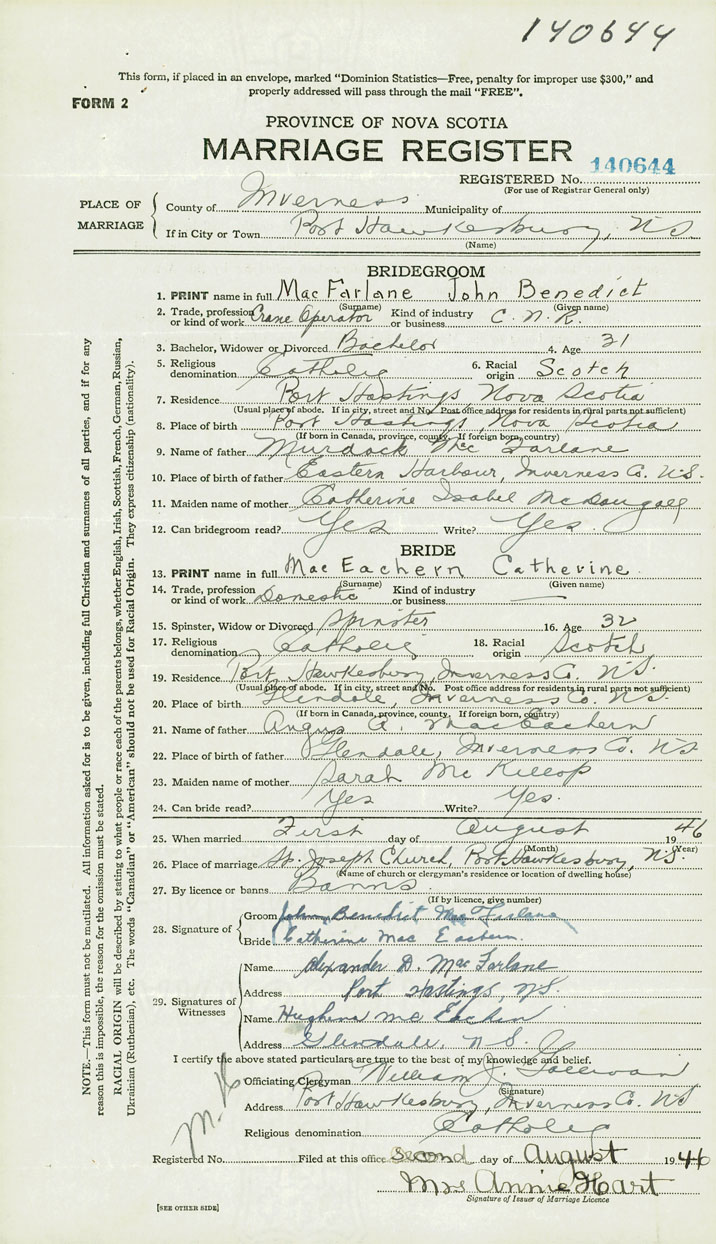 140644
This form, if placed in an envelope, marked "Dominion Statistics—Free, penalty for improper use $300," and
properly addressed will pass through the mail "FREE".
FORM 2
PROVINCE OF NOVA SCOTIA
MARRIAGE REGISTER
140644
REGISTERED No.
(For use of Registrar General only)
PLACE OF MARRIAGE
County of Inverness Municipality of
If in City or Town Port Hawkesbury, N.S.
(Name)
BRIDEGROOM
1. PRINT name in full MacFarlane John Benedict
(Surname) (Given name)
2. Trade, profession or kind of work Crane Operator Kind of industry or business C. N. R.
3. Bachelor, Widower or Divorced Bachelor 4. Age 31
5. Religious denomination Catholic 6. Racial origin Scotch
7. Residence Port Hastings, Nova Scotia
(Usual place of abode. If in city, street and No. Post office address for residents in rural parts not sufficient)
8. Place of birth Port Hastings, Nova Scotia
(If born in Canada, province, county. If foreign born, country)
9. Name of father Murdock McFarlane
10. Place of birth of father Eastern Harbour, Inverness Co. N.S.
11. Maiden name of mother Catherine Isabel McDougall
12. Can bridegroom read? Yes Write? Yes.
BRIDE
13. PRINT name in full MacEachern Catherine
(Surname) (Given name)
14. Trade, profession or kind of work Domestic Kind of industry or business —
15. Spinster, Widow or Divorced Spinster 16. Age 32
17. Religious denomination Catholic 18. Racial origin Scotch
19. Residence Port Hawkesbury, Inverness Co. N.S.
(Usual place of abode. If in city, street and No. Post office address for residents in rural parts not sufficient)
20. Place of birth Glendale, Inverness Co. N.S.
(If born in Canada, province, county. If foreign born, country)
21. Name of father Angus A. MacEachern
22. Place of birth of father Glendale, Inverness Co. N.S.
23. Maiden name of mother Sarah McKillop
24. Can bride read? Yes Write? Yes.
25. When married First day of August 1946
(Month) (Year)
26. Place of marriage St. Joseph Church, Port Hawkesbury, N.S.
(Name of church or clergyman's residence or location of dwelling house)
27. By licence or banns Banns.
(If by licence, give number)
28. Signature of
Groom John Benedict MacFarlane
Bride Catherine Mac Eachern.
29. Signatures of Witnesses
Name Alexander D. MacFarlane
Address Port Hastings, N.S.
Name Hughena McEachen
Address Glendale, N.S.
I certify the above stated particulars are true to the best of my knowledge and belief.
Officiating Clergyman William J. Gallivan
(Signature)
Address Port Hawkesbury, Inverness Co. N.S.
Religious denomination Catholic
Registered No. Filed at this office second day of August 1946
Mrs Annie Hart
Signature of Issuer of Marriage Licence
[SEE OTHER SIDE]
NOTE.—This form must not be mutilated. All information asked for is to be given, including full Christian and surnames of all parties, and if for any
reason this is impossible, the reason for the omission must be stated.
RACIAL ORIGIN will be described by stating to what people or race each of the parents belongs, whether English, Irish, Scottish, French, German, Russian,
Ukrainian (Ruthenian), etc. The words "Canadian" or "American" should not be used for Racial Origin. They express citizenship (nationality).